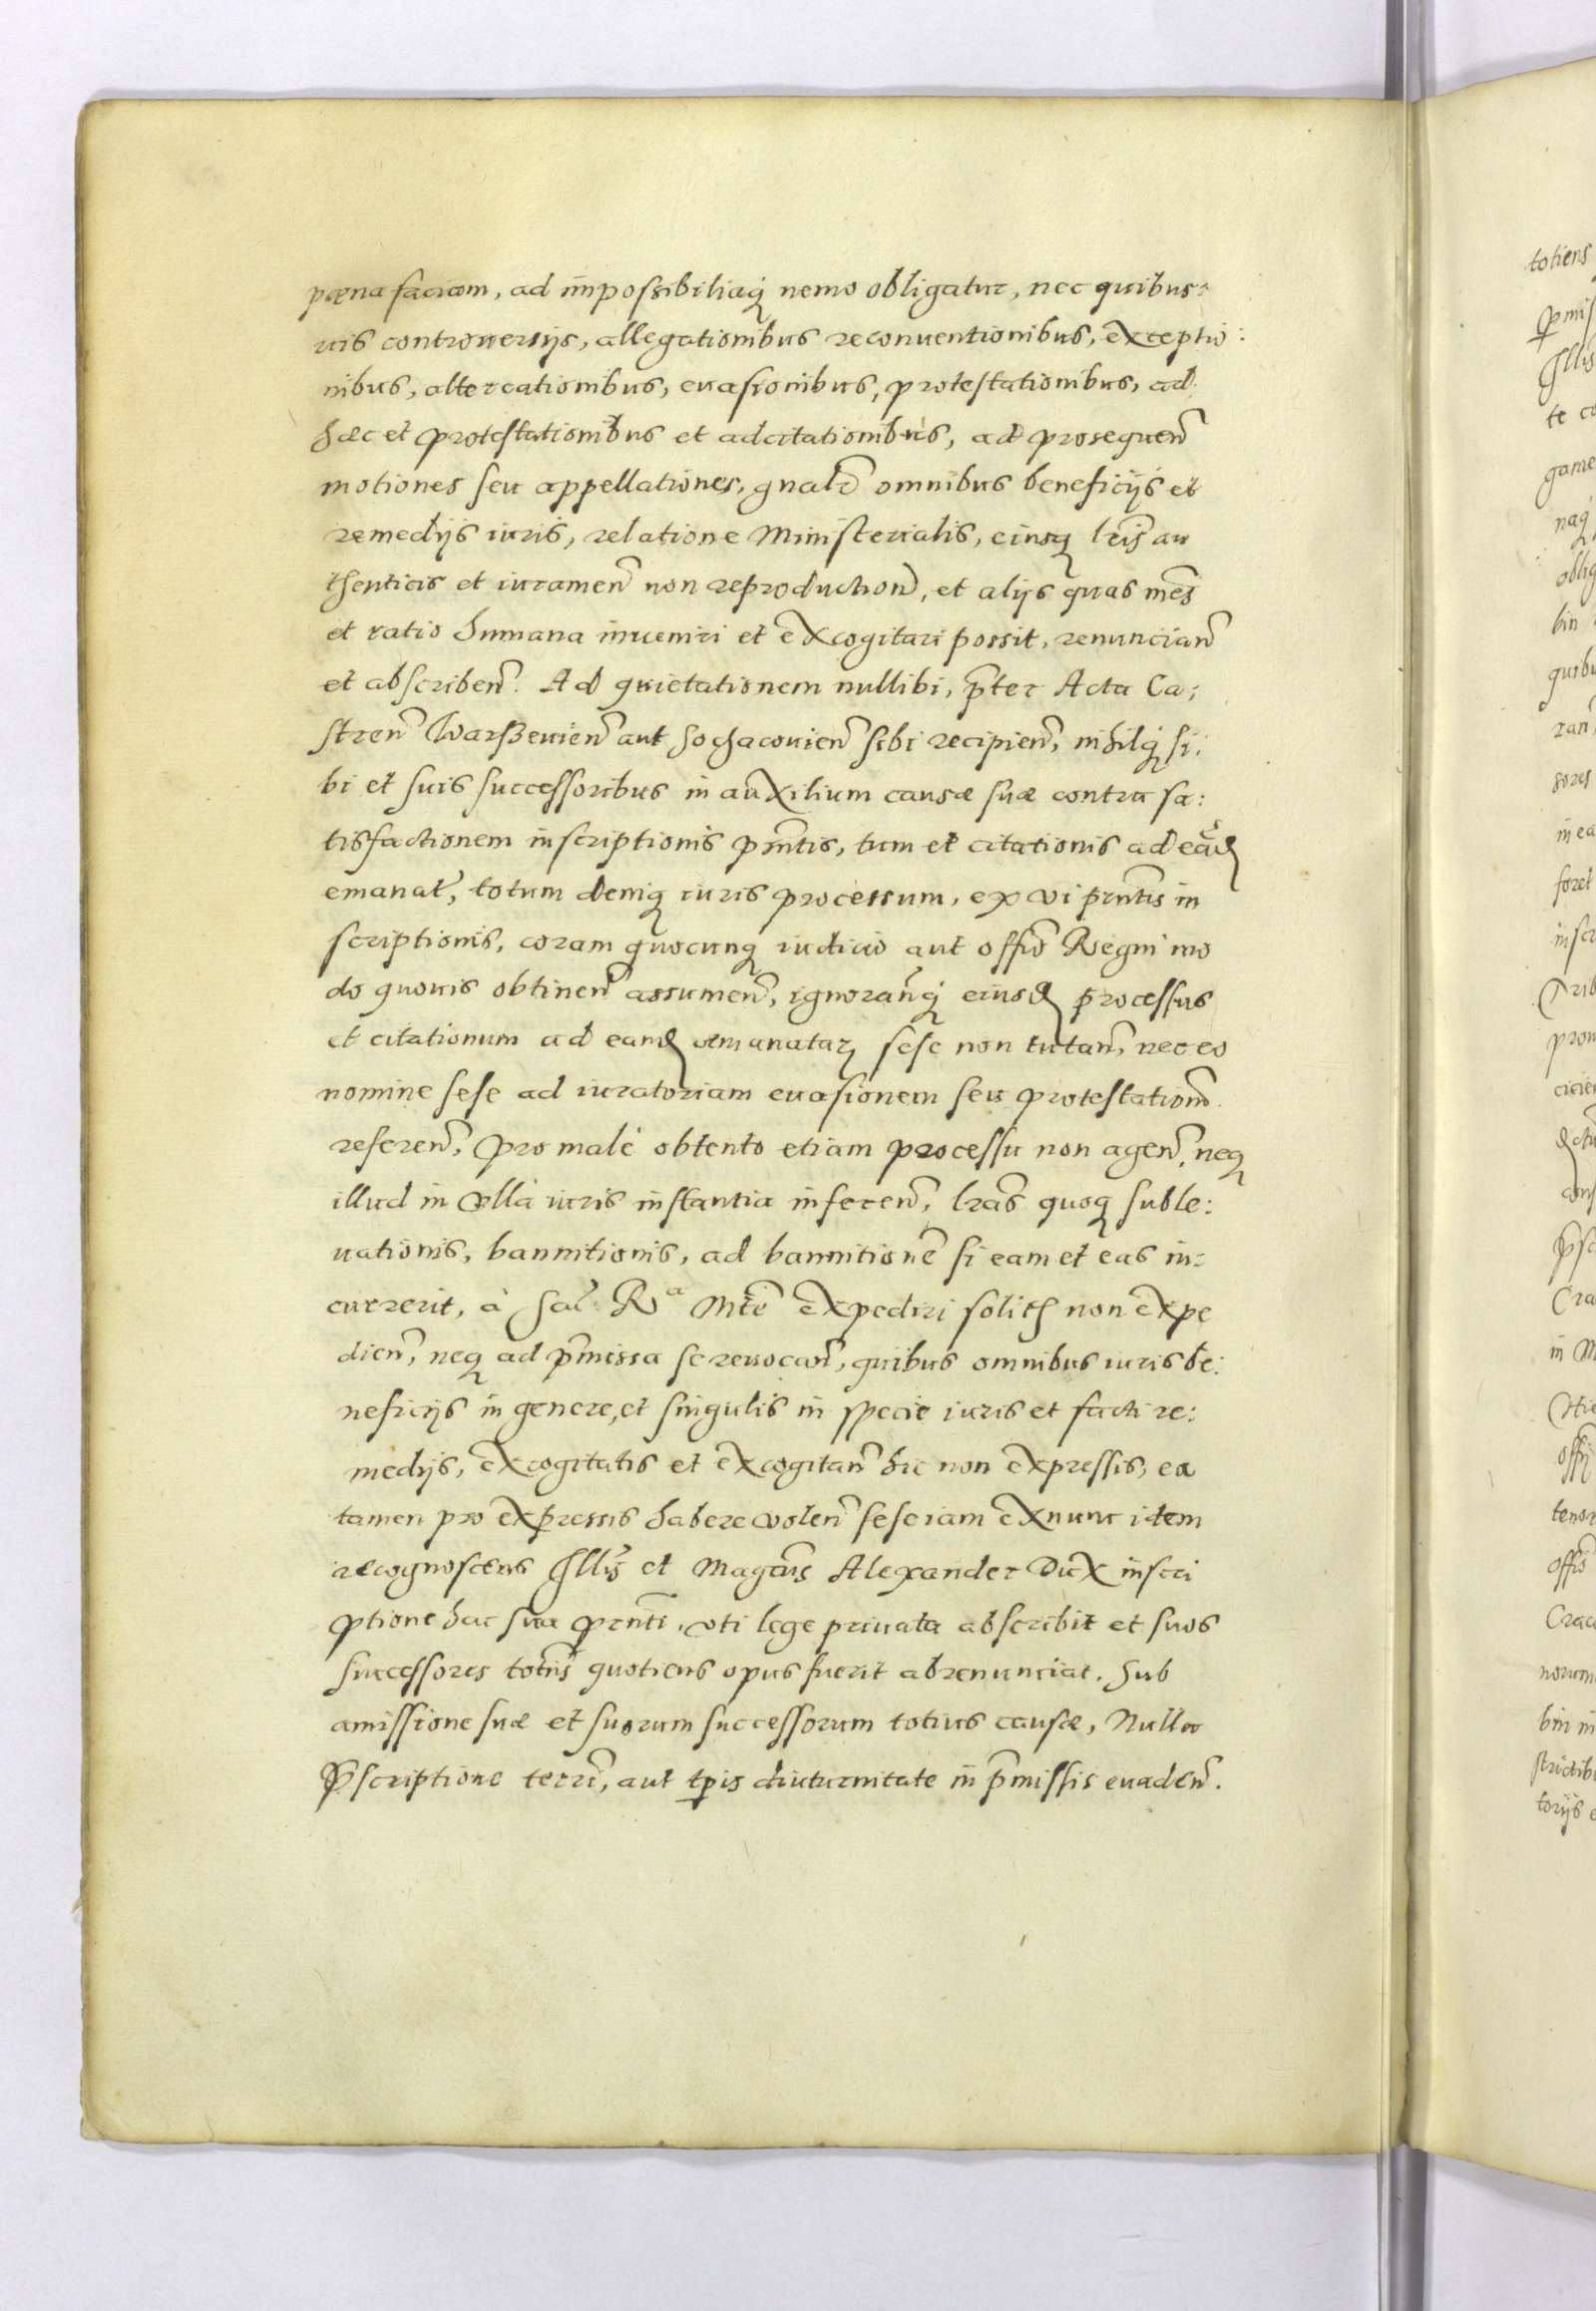 pœna faciam, ad impossibiliaq̃ nemo obligatur, nec quibus:
uis controuersijs, allegationibus reconuentionibus, exceptio:
nibus, altercationibus, euasionibus, protestationibus, ad
hæc et protestationibus et adcitationibus, ad prosequeñ
motiones seu appellationes, gnalr̃ omnibus beneficijs et
remedijs iuris, relatione Ministerialis, eiusq̃ lr̃is au
thenticis et iurameñ non reproductioñ, et alijs quas mẽs
et ratio humana inueniri et excogitari possit, renunciañ
et abscribeñ. Ad quietationem nullibi, p̃ter Acta Ca:
streñ Warßeuieñ aut Sochacouieñ sibi recipieñ, nihilq̃ si:
bi et suis successoribus in auxilium causæ suæ contra sa:
tisfactionem inscriptionis p̃ntis, tum et citationis ad eãd
emanat̃, totum deniq̃ iuris processum, ex vi pr̃ntis in
scriptionis, coram quocunq̃ iudicio aut offiõ Regni mo
do quouis obtineñ assumeñ, ignorañq̃ eiusd processus
et citationum ad eamd emanataꝝ sese non tutañ, nec eo
nomine sese ad iuratoriam euasionem seu protestationẽ
refereñ, pro malè obtento etiam processu non ageñ, neq̃
illud in vlla iuris instantia infereñ, lr̃as quoq̃ suble:
uationis, bannitionis, ad bannitionẽ si eam et eas in:
currerit, à Sac̃: Rᵃ Mtẽ expediri solitꝭ non expe
dieñ, neq̃ ad p̃missa se reuocañ, quibus omnibus iuris be:
neficijs in genere, et singulis in specie iuris et facti re:
medijs, excogitatis et excogitañ hic non expressis, ea
tamen pro expressis habere voleñ sese iam exnunc idem
recognoscens Illr̃is et Magcũs Alexander Dux inscri
ptione hac sua pr̃nti, vti lege priuata abscribit et suos
successores totiẽs quotiens opus fuerit abrenunciat. Sub
amissione suæ et suorum successorum totius causæ, Nulla
p̃scriptione terrr̃i, aut tp̃is diuturnitate in p̃missis euadeñ.
totiens